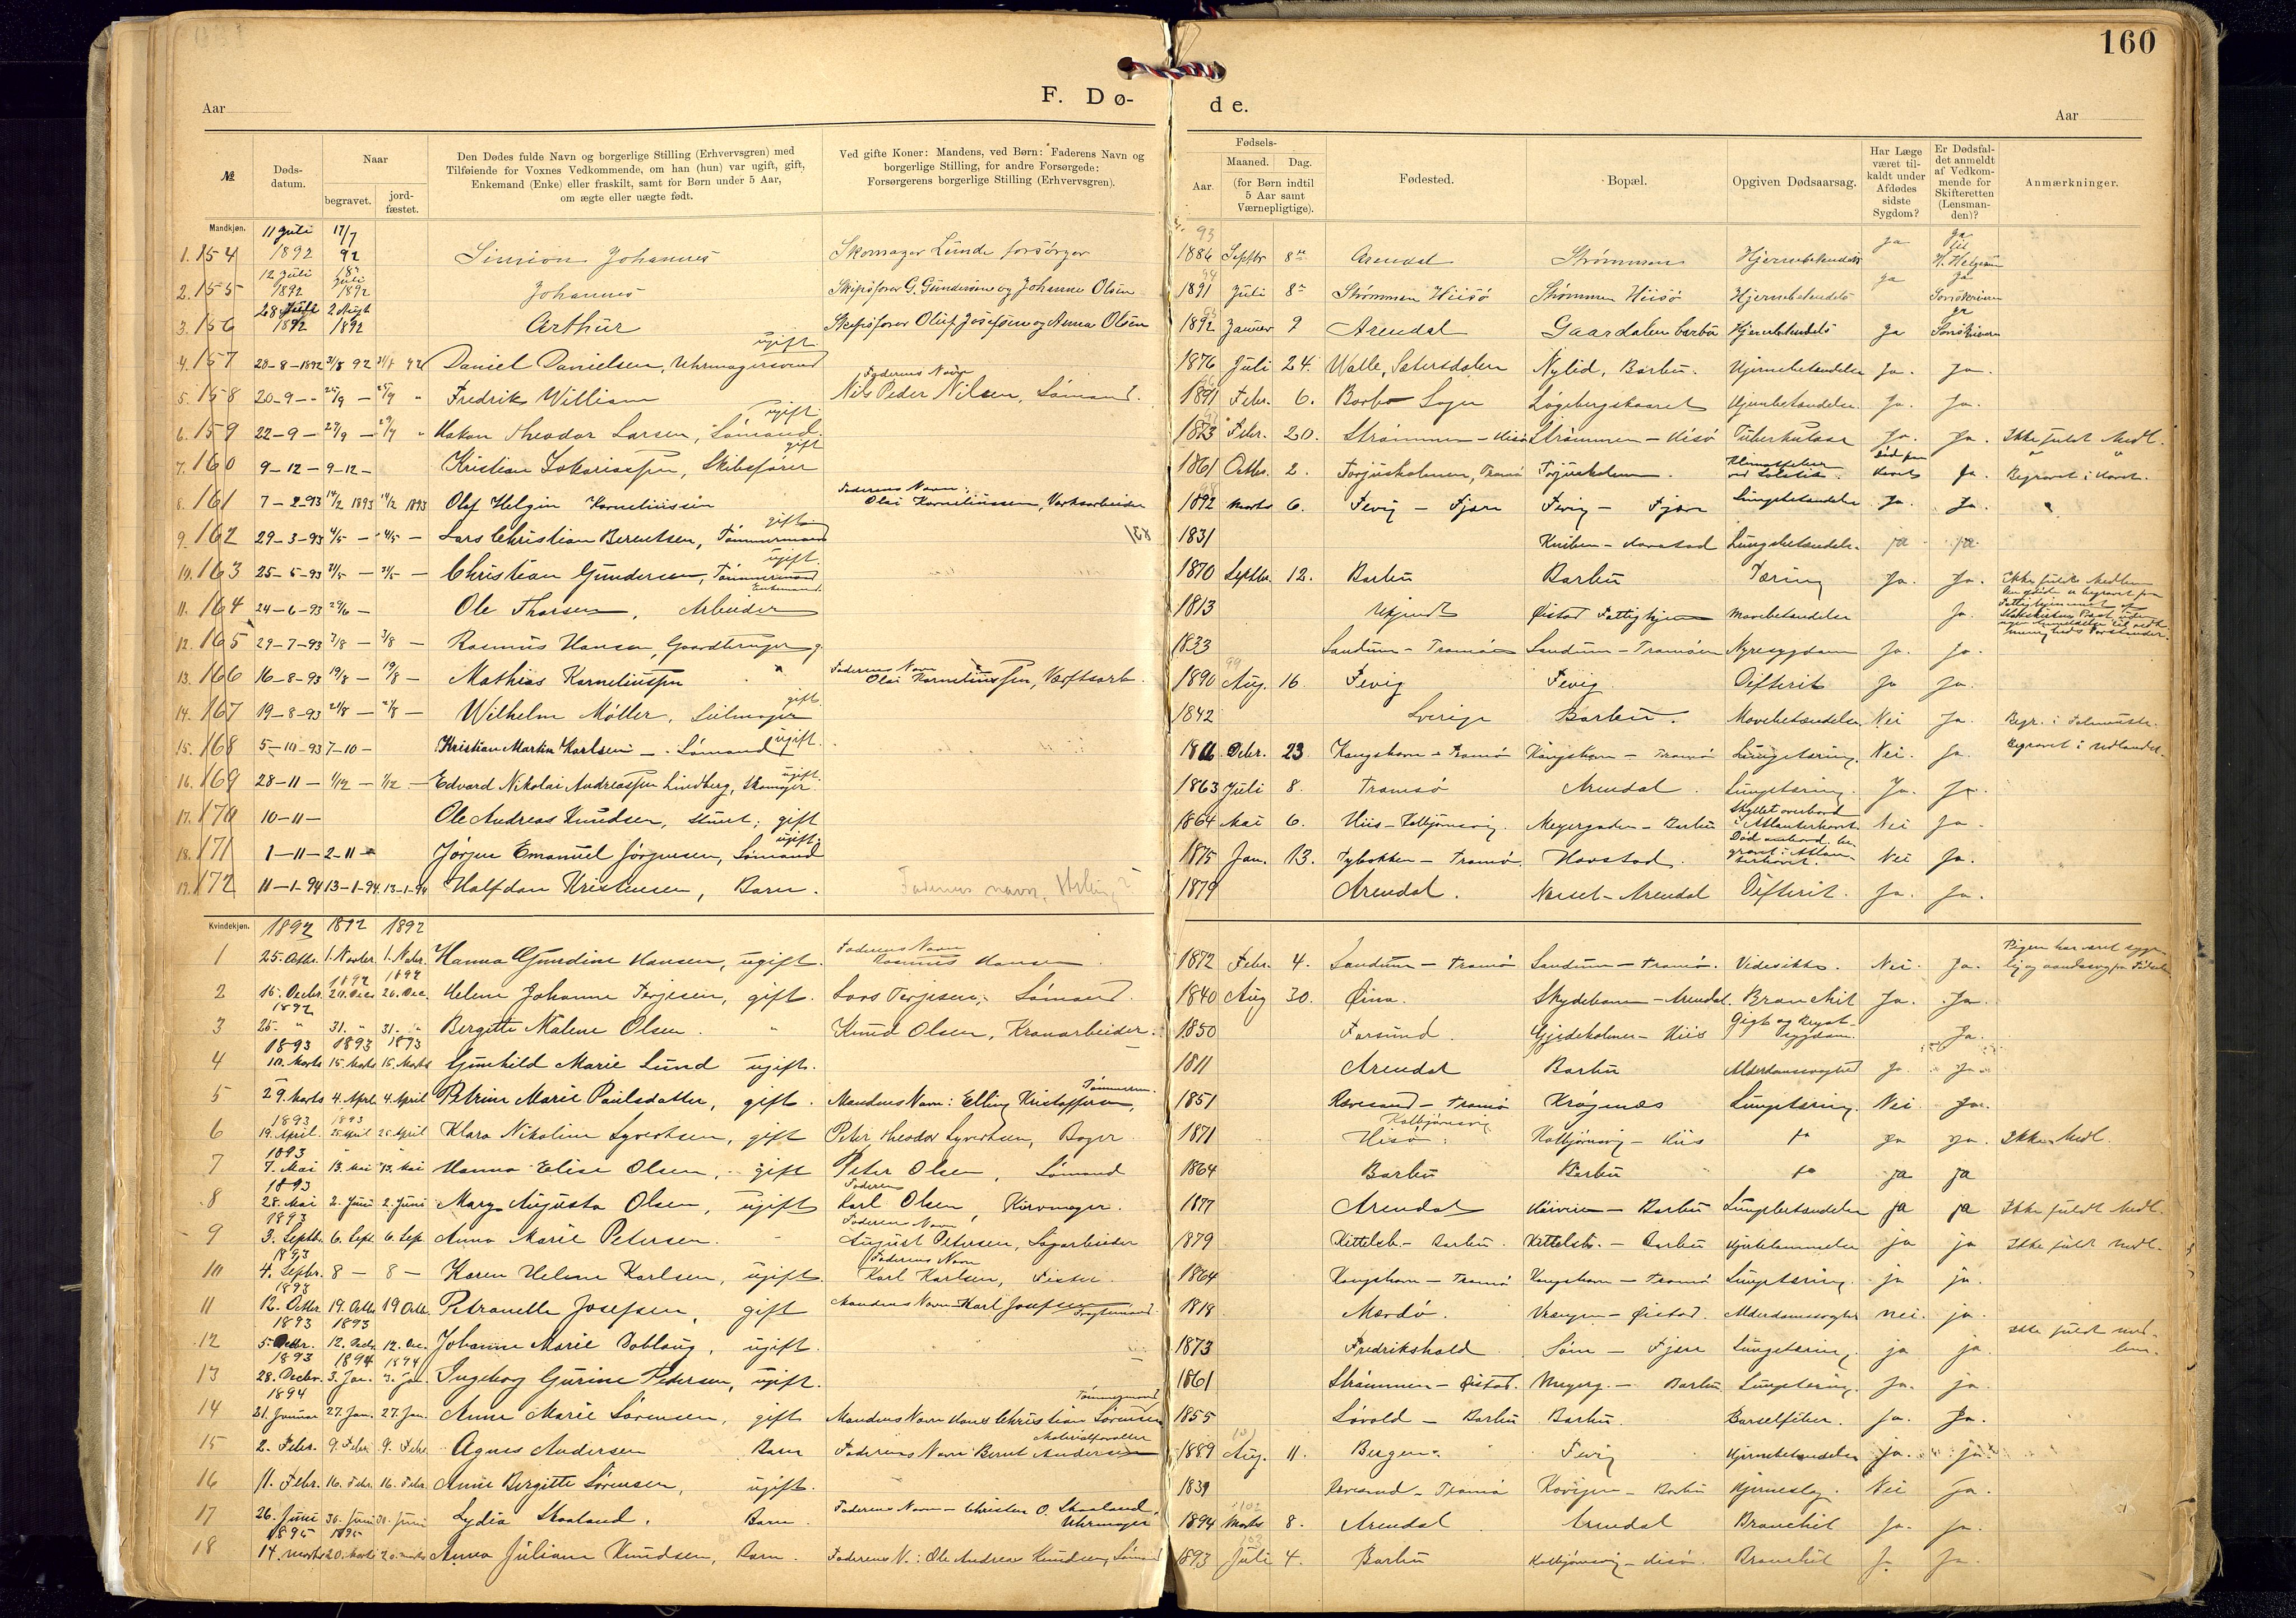 160
Aar
F. Dø-
de.
Aar
№
Døds-
datum.
Naar
begravet.
jord-
fæstet.
Den Dødes fulde Navn og borgerlige Stilling (Erhvervsgren) med
Tilføiende for Voxnes Vedkommende, om han (hun) var ugift, gift,
Enkemand (Enke) eller fraskilt, samt for Børn under 5 Aar,
om ægte eller uægte født.
Ved gifte Koner: Mandens, ved Børn: Faderens Navn og
borgerlige Stilling, for andre Forsørgede:
Forsørgerens borgerlige Stilling (Erhvervsgren).
Fødsels-
Aar.
Maaned.
Dag.
(for Børn indtil
5 Aar samt
Værnepligtige).
Fødested.
Bopæl.
Opgiven Dødsaarsag.
Har Læge
været til-
kaldt under
Afdødes
sidste
Sygdom?
Er Dødsfal-
det anmeldt
af Vedkom-
mende for
Skifteretten
(Lensman-
den)?
Anmærkninger.
Mandkjøn.
1. 154 11 Juli 1892 17/7 92 Simion Johannes Skomager Lunde forsørger 1886 Septbr 8 Arendal Strømmen Hjernebetendels ja ja
2. 155 12 Juli 1892 18 Juli 1892 Johannes Skipsfører G. Gundersen og Johanne Olsen 1891 Juli 8 Strømmen Hiisö Strømmen Hiisö Hjernebetendels ja ja
3. 156 28 Juli 1892 2 Augst 1892 Arthur Skipsfører Oluf Josefsen og Anna Olsen 1892 Januer 9 Arendal Gaardalen barbu Hjernebetendels ja ja
4. 157 28-8-1892 31/8 92 31/8 92 Daniel Danielsen, Uhrmagersvend ugift 1876 Juli 24. Walle, Setersdalen Nylid, Barbu. Hjernebetendelse Ja. Ja.
5. 158 20-9-- 25/9 - 25/9 " Fredrik William Faderens Navn Nils Peder Nilsen, Sömand. 1891 Febr. 6. Barbo Sogn Lögebergskaaret Hjernebetendelse. Ja. Ja.
6. 159 22-9- 29/9 - 29/9 " Hakon Theodor Larsen, Sömand. ugift. 1873 Febr. 20. Strömmen - Hisö Strömmen - Hisö Tuberkulose Ja. Ja. Ikke fuldt Medl.
7. 160 9-12- 9-12- Kristian Zakariassen, Skibsfører gift 1861 Octbr. 2. Torjusholmen, Tromö Torjusholmen. Ja Begravet i Havet.
8. 161 7-2-93 14/2 1893 14/2 1893 Olaf Helgin Korneliussen Faderens Navn: Olai Korneliussen, Verksarbeider 1892 Marts 6. Fevig - Fjære Fevig - Fjære Lungebetendelse Ja. Ja.
9. 162 29-3-93 4/5 - 4/5 - Lars Christian Berentsen, Tömmermand gift 1831 Kniben - Havstad Lungebetendelse. ja ja
10. 163 25-5-93 31/5 - 31/5 - Christian Gundersen, Tömmermand ugift. 1870 Septbr. 12. Barbu Barbu Tæring Ja. Ja. Ikke fuldt Medlem
11. 164 24-6-93 29/6 - Ole Thorsen, Arbeider Enkemand 1813 Ukjendt Øistad Fattighjem Mavebetendelse Ja.
12. 165 29-7-93 3/8 - 3/8 - Rasmus Hansen, Gaardbruger g. 1833 Sandum - Tromöen Sandum - Tromöen Nyresygdom Ja. Ja.
13. 166 16-8-93 19/8 - 19/8 - Mathias Korneliussen Faderens Navn Olai Korneliussen, Værftsarb. 1890 Aug. 16. Fevig Fevig. Difterit Ja Ja.
14. 167 19-8-93 21/8 - 21/8 - Wilhelm Möller, Seilmager gift. 1842 Sverige Barbu. Mavebetændelse Nei Ja.
15. 168 5-10-93 7-10- Kristian Martin Karlsen - Sömand ugift. Debr. 23 Kongshavn - Tromö Kongshavn - Tromö Lungetæring. Nei. Ja. Begravet i Udlandet.
16. 169 28-11- 1/12 - 1/12 - Edvard Nikolai Andreassen Lindberg, Skomager. ugift. 1863 Juli 8. Tromsö Arendal. Lungetæring. Ja. Ja.
17. 170 10-11- Ole Andreas Knudsen, Stuert; gift 1864 Mai 6. Hiis - Kolbjörnsvig. Meyergaden - Barbu Skyllet overbord i Atlanterhavet Nei Ja.
18. 171 1-11- 2-11- Jörgen Emanuel Jörgensen, Sömand ugift 1875 Jan. 13. Tybakken - Tromö Havstad. Nei Ja.
19. 172 11-1-94 13-1-94 13-1-94 Halfdan Kristensen, Barn. Faderens navn, 1879 Arendal. Næset - Arendal Difterit. Ja. Ja.
Kvindekjøn. 1892 1892 1892
1 25. Octbr. 1. Novbr. 1. Nobr. Hanna Gundine Hansen, ugift. Faderens Navn Rasmus Hansen. 1872 Febr. 4. Sandum - Tromö Sandum - Tromö. Nei. Ja.
1892 1892
2 16. Decbr. 20. Dec. 20. Dec. Helene Johanne Terjesen, gift. Lars Terjesen, Sömand. 1840 Aug 30. Øina. Skydebanen - Arendal. Bronchit Ja. Ja.
1892
3 25. " 31. " 31. " Bergitte Malene Olsen. " Knud Olsen, Kranarbeider. 1850 Farsund. Gjedeholmen - Hiis Gigt og Bryst- sygdom. Ja.
1893 1893 1893
4 10. Marts 15. Marts 15. Marts Gunhild Marie Lund ugift. 1811 Arendal Barbu Alderdomssvaghed Ja. Ja.
5 29. Marts 4. April 4. April Petrine Marie Paulsdatter, gift. Mandens Navn: Elling Kristoffersen, Tömmerm. 1851 Revesand - Tromö Krögenes Lungetæring. Nei. Ja.
1893 1893
6 19. April. 25 April 25 April Klara Nikoline Syvertsen, gift Peter Theodor Syvertsen, Bager. 1871 Hisö: Kolbjörnsvig Kolbjörnsvig - Hiis ja ja. Ikke Medl.
1893
7 7. Mai 13. Mai 13. Mai Hanna Elise Olsen, gift Peter Olsen, Sömand 1864 Barbu Barbu ja ja
1893
8 28. Mai 2. Juni 2. Juni Mary Augusta Olsen, ugift Faderen Karl Olsen, Kurvmager. 1877 Arendal - Barbu Lungebetændelse ja ja Ikke fuldt Medl.
1893
9 3. Septbr. 6. Sept 6. Sep. Anna Marie Petersen. Faderens Navn August Petersen, Sagarbeider 1879 Kittelsb. - Barbu. Kittelsb. - Barbu Hjertelammelse ja ja Ikke fuldt Medl.
1893
10 4. Septbr. 8 - 8 - Karen Helene Karlsen, ugift. Faderens Navn Karl Karlsen, Fisker. 1864 Kongshavn - Tromö Kongshavn - Tromö Lungetæring. ja ja.
1893
11 12. Octbr 19. Octbr 19 Octb. Petronelle Josefsen, gift Mandens Navn Karl Josefsen 1818 Mærdö. Vrengen - Øistad. Alderdomssvaghed nei. ja.
1893 1893
12 12. Decbr. 12. Dec. Johanne Marie Doblaug, ugift. 1873 Fredrikshald Søm - Fjære Lungetæring. ja ja. Ikke fuldt med- lem.
1893 1894 1894
13 28. Decbr. 3. Jan. 3. Jan. Ingeborg Gurine Pedersen, ugift. 1861 Strömmen - Øistad. Meyerg. - Barbu. Lungetæring. Ja. ja.
1894
14 21. Januar 27. Jan. 27. Jan. Anne Marie Sörensen, gift Mandens Navn Hans Christian Sörensen Tömmermand 1855 Lövold - Barbu Barbu. Barselfeber. Ja. Ja.
15 2. Febr. 9. Febr 9. Febr Agnes Andersen Barn Faderens Navn Bernt Andersen Materialforvalter 1889 Aug. 11. Bergen. Fevig Hjernebetændelse ja. ja.
16 11. Febr. 16. Febr. 16. Febr. Anne Bergitte Sörensen, ugift. 1839 Revesand - Tromö - Barbu Hjerneslag. Nei Ja.
17 26. Juni 30. Juni 30. Juni Lydia Skaaland. Barn. Faderens Navn - Christen O. Skaaland Uhrmager 1894 Marts 8. Arendal. Arendal Bronchit Ja. ja.
1895 1895
18 14. marts 20. Marts 20. marts Anna Juliane Knudsen, Barn. Faderens N.: Ole Andreas Knudsen, Sömand 1893 Juli 4. Barbu Kolbjörnsvig - Hisö. Bronchit Ja Ja.